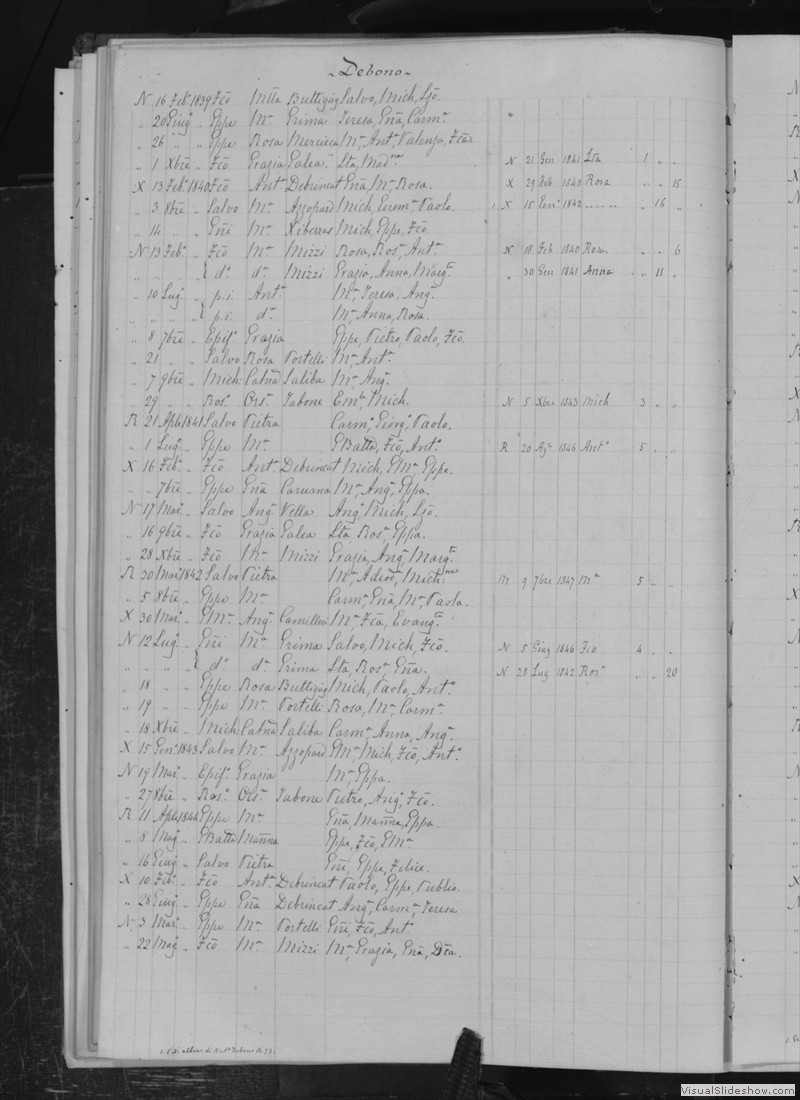 Debono
N 16 Feb° 1839 Fčo Mtta Buttigieg Salvo, Mich, Ljo.
„ 20 Giug „ Gppe Mª Grima Teresa, Gña, Carmª
„ 26 „ „ Gppe Rosa Mercieca Mª, Antª, Valenza, Fča.
„ 1 Xbre „ Fčo Grazia Galea Lta, Madna N 21 Gen 1841 Lta 1 „ „
X 13 Feb° 1840 Fčo Antª Debrincat Gña, Mª, Rosa. X 29 Feb 1840 Rosa „ „ 15
„ 3 8bre „ Salvo Mª Azzopard Mich, Gerem°, Paolo. X 15 Gen° 1842 „ 16 „
„ 14 „ „ Gñi Mª Xiberras Mich, Gppe, Fčo
N 13 Feb° „ Fčo Mª Mizzi Rosa, Rosª, Antª N 18 Feb 1840 Rosa „ „ 6
„ „ „ „ { d° dª Mizzi Grazia, Anna, Margta „ 30 Gen 1841 Anna „ 11 „
„ 10 Lug° „ p.i. Antª Mª, Teresa, Angª
„ „ „ { p.i. dª Mª, Anna, Rosa.
„ 8 7bre „ Epif° Grazia Gppe, Pietro, Paolo, Fčo.
„ 21 „ „ Salvo Rosa Portelli Mª, Antª
„ 7 9bre „ Mich Catna Saliba Mª, Angª
„ 29 „ „ Ros° Orsª Tabone Emle, Mich. N 5 Xbre 1843 Mich 3 „ „
R 21 Aple 1841 Salvo Pietra Carm°, Giorg°, Paolo.
„ 1 Lug° „ Gppe Mª GBatta, Fčo, Ant° R 20 Ag° 1846 Ant° 5 „ „
X 16 Feb° „ Fčo Antª Debrincat Mich, GMª, Gppe.
„ „ 7bre „ Gppe Gña Caruana Mª, Angª, Gppa.
N 17 Mar° „ Salvo Angª Vella Ang°, Mich, Ljo.
„ 16 9bre „ Fčo Grazia Galea Lta, Rosª, Gppa.
„ 28 Xbre „ Fčo Mª Mizzi Grazia, Angª, Margta
R 30 Mar° 1842 Salvo Pietra Mª, Adeodª, Michna M 9 7bre 1847 Mª 5 „ „
„ 5 8bre „ Gppe Mª Carmª, Gña, Mª, Paola.
X 30 Mar° „ GMª Angª Camilleri Mª, Fča, Evangta
N 12 Lug° „ Gñi Mª Grima Salvo, Mich, Fčo. N 5 Giug 1846 Fčo 4 „ „
„ „ „ „ { d° dª Grima Lta, Rosª, Gña. N 28 Lug 1842 Rosª „ „ 20
„ 18 „ „ Gppe Rosa Buttigieg Mich, Paolo, Ant°
„ 19 „ „ Gppe Mª Portelli Rosa, Mª, Carmª
„ 18 Xbre „ Mich Catna Saliba Carmª, Anna, Angª
X 15 Gen° 1843 Salvo Mª Azzopard GMª, Mich, Fčo, Ant°
N 19 Mar° „ Epif° Grazia Mª, Gppa.
„ 27 8bre „ Ros° Orsª Tabone Pietro, Ang°, Fčo.
R 11 Aple 1844 Gppe Mª Gña, Manna, Gppa.
„ 5 Mag „ GBatta Manna Gppe, Fčo, GMª
„ 16 Giug „ Salvo Pietra Gñi, Gppe, Felice.
X 10 Feb° „ Fčo Antª Debrincat Paolo, Gppe, Publio.
„ 28 Giug° „ Gppe Gña Debrincat Angª, Carmª, Teresa
N 3 Mar° „ Gppe Mª Portelli Gñi, Fčo, Ant°
„ 22 Mag „ Fčo Mª Mizzi Mª, Grazia, Gña, Dča.
VisualSlideshow.com